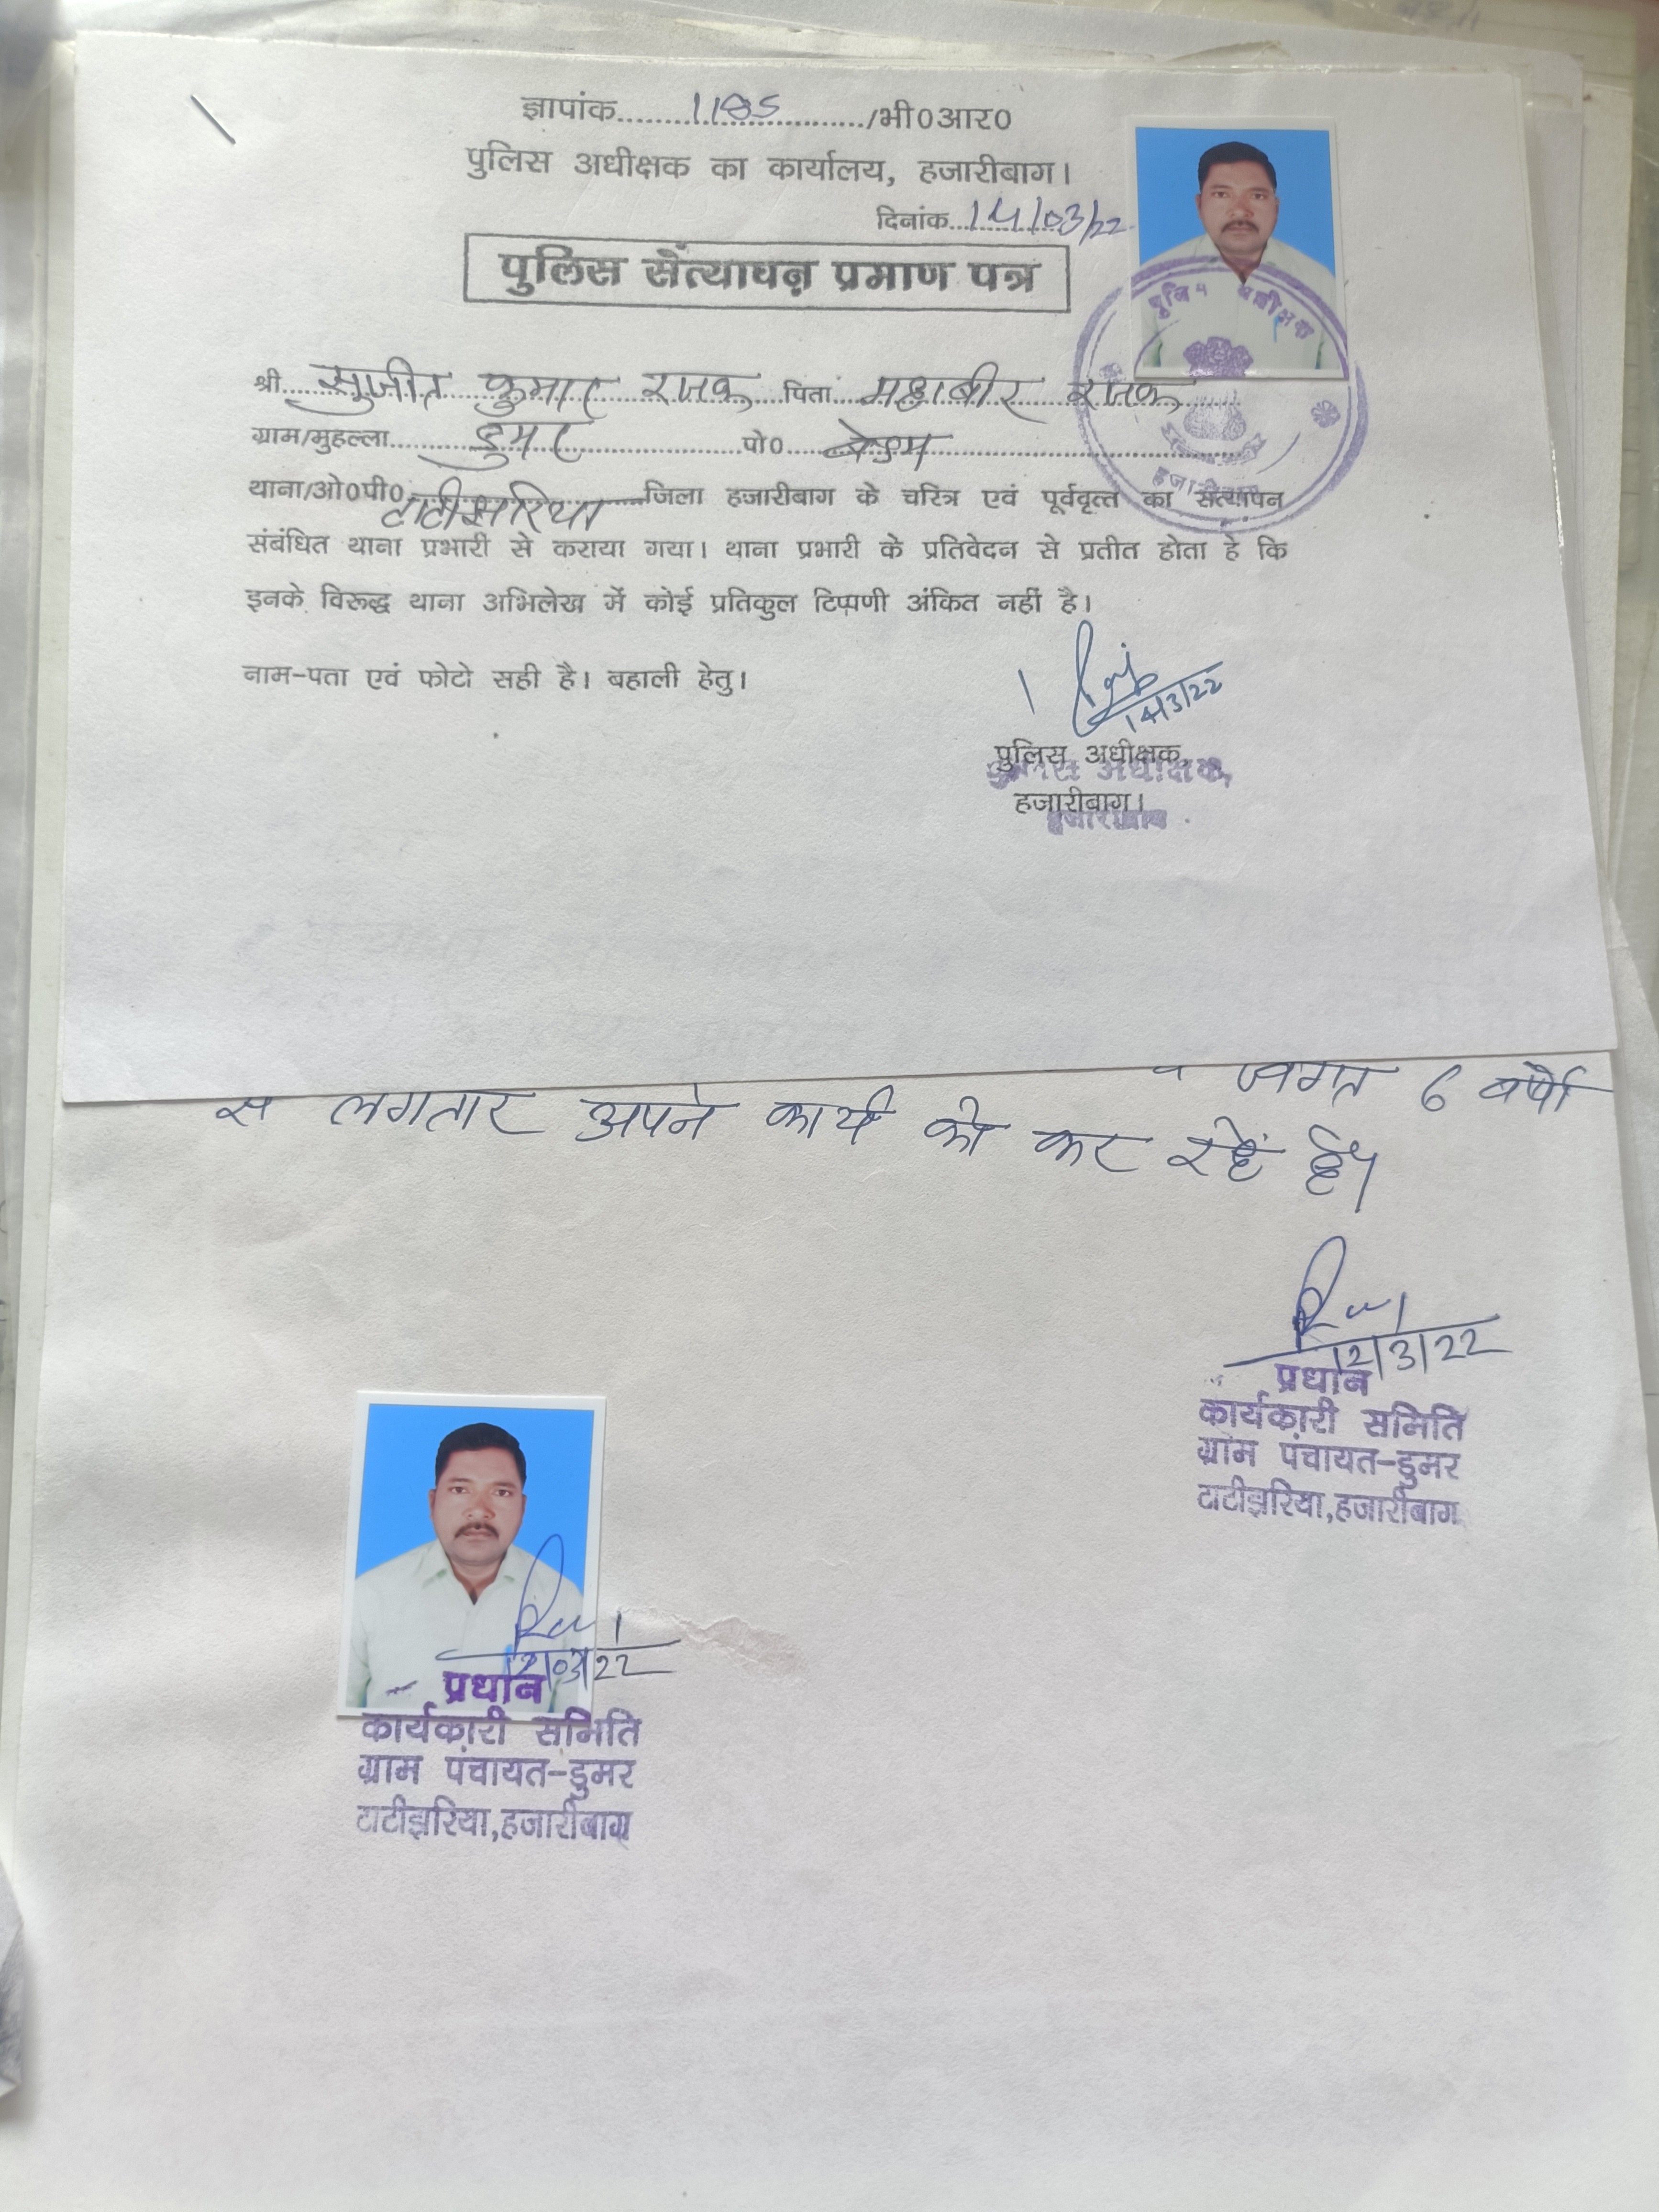 ज्ञापांक.....1185...../भी0आर0
पुलिस अधीक्षक का कार्यालय, हजारीबाग।
दिनांक...14/03/22
पुलिस सत्यापन प्रमाण पत्र
श्री....सुजीत कुमार रजक....पिता...महाबीर रजक
ग्राम/मुहल्ला.....डुमर.....पो0.....बेडम.....
थाना/ओ0पी0 टाटीझरिया जिला हजारीबाग के चरित्र एवं पूर्ववृत्त का सत्यापन
संबंधित थाना प्रभारी से कराया गया। थाना प्रभारी के प्रतिवेदन से प्रतीत होता है कि
इनके विरूद्ध थाना अभिलेख में कोई प्रतिकुल टिप्पणी अंकित नहीं है।
नाम-पता एवं फोटो सही है। बहाली हेतु।
14/3/22
पुलिस अधीक्षक,
हजारीबाग।
पुलिस अधीक्षक,
हजारीबाग
6 वर्षो
से लगतार अपने कार्य को कर रहें हैं।
12/3/22
प्रधान
कार्यकारी समिति
ग्राम पंचायत-डुमर
टाटीझरिया,हजारीबाग
12/03/22
प्रधान
कार्यकारी समिति
ग्राम पंचायत-डुमर
टाटीझरिया,हजारीबाग